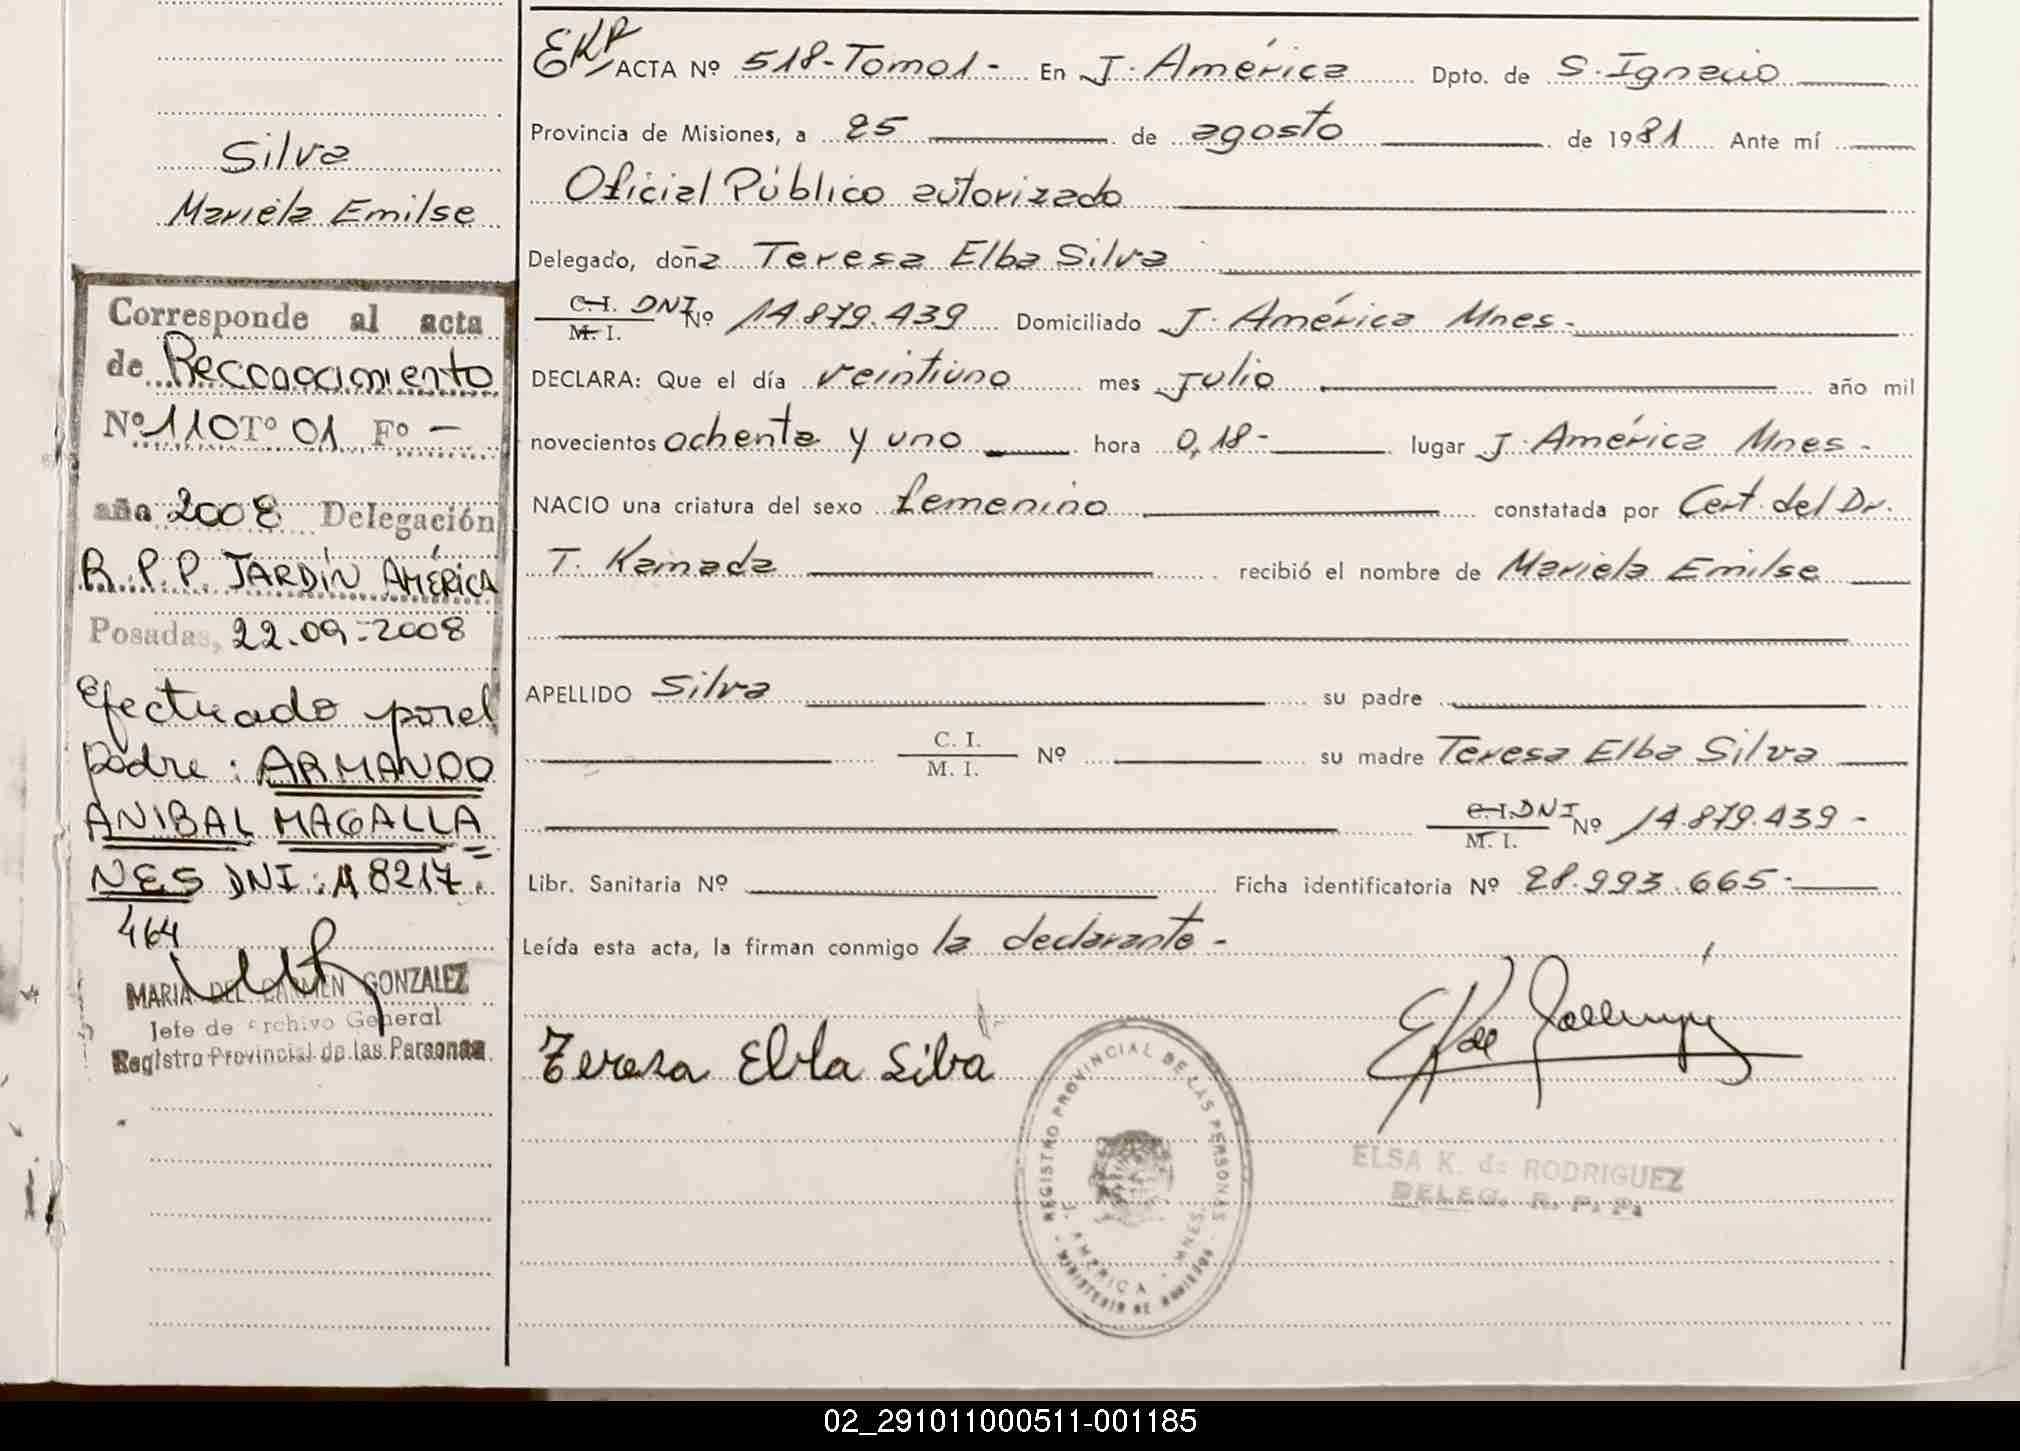 Silva
Mariela Emilse
Corresponde al acta
de Reconocimiento
Nº 110 Tº 01 Fº -
año 2008 Delegación
R.P.P. JARDÍN AMÉRICA
Posadas, 22.09-2008
Efectuado por el
padre: ARMANDO
ANIBAL MAGALLA
NES DNI: 18217.
464
MARIA DEL CARMEN GONZALEZ
Jefe de Archivo General
Registro Provincial de las Personas
ACTA Nº 518-Tomo1- En J. América Dpto. de S. Ignacio
Provincia de Misiones, a 25 de agosto de 1981 Ante mí
Oficial Público autorizado
Delegado, doña Teresa Elba Silva
C.I. DNI Nº 14.879.439 Domiciliado J. América Mnes.-
M. I.
DECLARA: Que el día veintiuno mes Julio año mil
novecientos ochenta y uno hora 0,18- lugar J. América Mnes.-
NACIO una criatura del sexo femenino constatada por Cert. del Dr.
T. Kamada recibió el nombre de Mariela Emilse
APELLIDO Silva su padre
C. I.
M. I. Nº su madre Teresa Elba Silva
C.I. DNI Nº 14.879.439-
M. I.
Libr. Sanitaria Nº Ficha identificatoria Nº 28.993.665-
Leída esta acta, la firman conmigo la declarante-
Teresa Elba Silva
REGISTRO PROVINCIAL DE LAS PERSONAS
AMERICA - MNES.
MINISTERIO DE GOBIERNO
ELSA K. de RODRIGUEZ
DELEG. R. P. P.
02_291011000511-001185